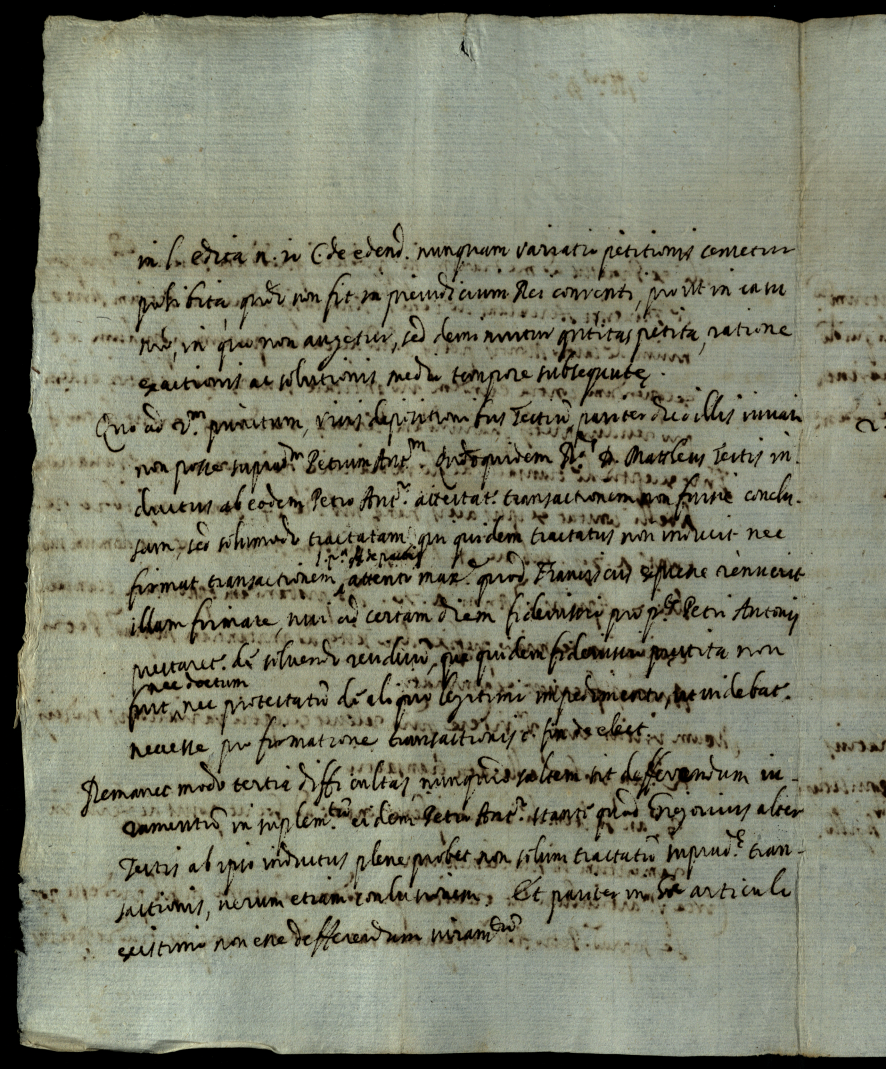 in l. edita n. 11 C. de edend. nunquam variatio petitionis censetur
prohibita quando non fit in preiudicium Rei conventi, prout in casu
nro, in quo non augetur, sed deminuitur qntitas petita, ratione
exactionis ac solutionis medio tempore subsequutę.
Quo ad 2.m punctum, visis depositionibus Testiū pariter dico illis iuvari
non posse suprad.m Petrum Ant.m Qnoquidem R.s D. Mattheus Testis in-
ductus ab eodem Petro Ant.o attestat. transactionem non fuisse conclu-
sam, sed solumodo tractatam, qui quidem tractatus non inducit nec
firmat transactionem, attento max.e quod Franciscus expresse renuerit
illam firmare, nisi ad certam diem fideiussor pro p.to Petri Antonij
prestaret de solvendo residuū, quę quidem fideiussio prestita non
nec doctum
fuit, nec protestatū de aliquo legitimo impedimento, ut videbat.
necesse pro firmatione transactionis
Remanet modo tertia difficultas, nunquid saltem sit defferendum iu-
ramentū in suplem.tum eidem Petro Ant.o stante quod Gregorius alter
Testis ab ipso inductus plene probet non solum tractatū suprad.e tran-
sactionis, verum etiam conclusionem. Et pariter in articulo
existimo non esse defferendum iuram.tum